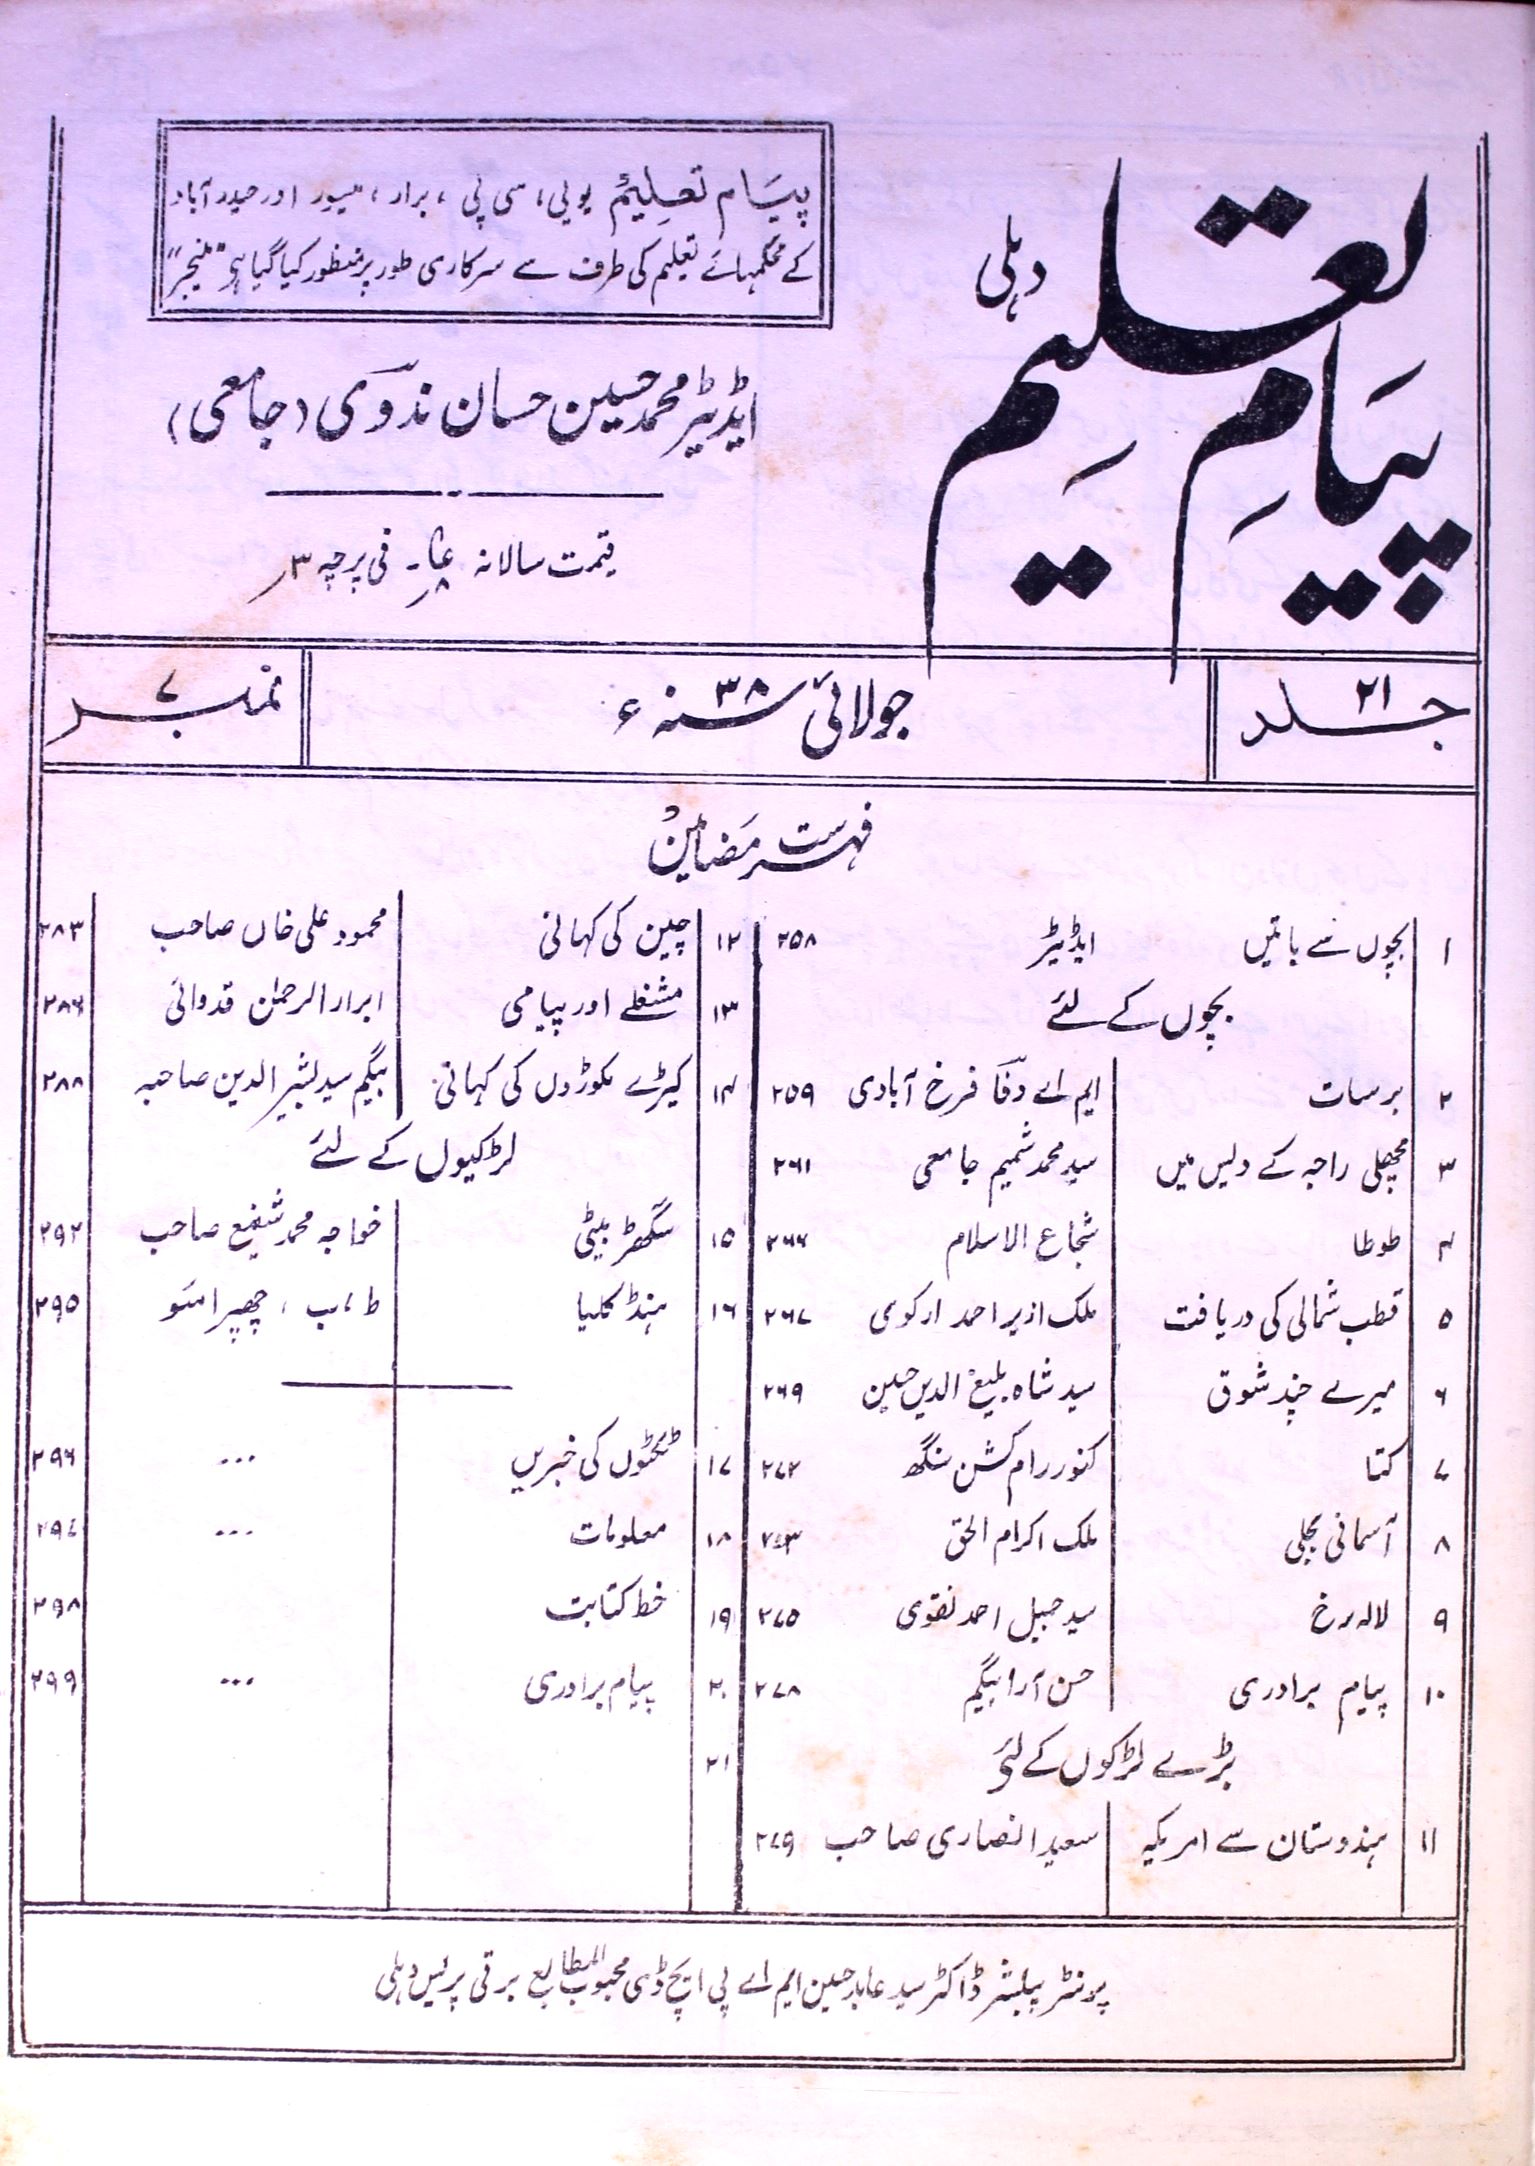 پیام تعلیم
دہلی
پیام تعلیم یوپی، سی پی، برار، میسور اور حیدرآباد
کے محکمہائے تعلیم کی طرف سے سرکاری طور پر منظور کیا گیا ہے "منیجر"
ایڈیٹر محمد حسین حسان ندوی (جامعی)
قیمت سالانہ فی پرچہ ۳ر
جلد ۲۱
جولائی ۳۸ سنہ ء
نمبر ۷
فہرست مضامین
۱ بچوں سے باتیں ایڈیٹر ۲۵۸
بچوں کے لئے
۲ برسات ایم اے وفا فرخ آبادی ۲۵۹
۳ مچھلی راجہ کے دیس میں سید محمد شمیم جامعی ۲۶۱
۴ طوطا شجاع الاسلام ۲۶۶
۵ قطب شمالی کی دریافت ملک ازیر احمد ارکوی ۲۶۷
۶ میرے چند شوق سید شاہ بلیغ الدین حسین ۲۶۹
۷ کتا کنور رام کشن سنگھ ۲۷۲
۸ آسمانی بجلی ملک اکرام الحق ۲۷۳
۹ لالہ رخ سید جمیل احمد نقوی ۲۷۵
۱۰ پیام برادری حسن آرا بیگم ۲۷۸
بڑے لڑکوں کے لئے
۱۱ ہندوستان سے امریکہ سعید انصاری صاحب ۲۷۹
۱۲ چین کی کہانی محمود علی خاں صاحب ۲۸۳
۱۳ مشغلے اور پیامی ابرار الرحمن قدوائی ۲۸۶
۱۴ کیڑے مکوڑوں کی کہانی بیگم سید بشیر الدین صاحبہ ۲۸۸
لڑکیوں کے لئے
۱۵ سگھڑ بیٹی خواجہ محمد شفیع صاحب ۲۹۲
۱۶ ہنڈ کلیا ط، ب، چھپرامئو ۲۹۵
۱۷ ٹکٹوں کی خبریں ... ۲۹۶
۱۸ معلومات ... ۲۹۷
۱۹ خط کتابت ۲۹۸
۲۰ پیام برادری ... ۲۹۹
۲۱
پرنٹر پبلشر ڈاکٹر سید عابد حسین ایم اے پی ایچ ڈی محبوب المطابع برقی پریس دہلی